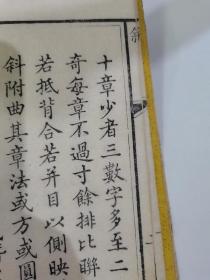 十章少者三數字多至二
奇每章不過寸餘排比聯
若抵背合若并目以側映
斜附曲其章法或方或圓